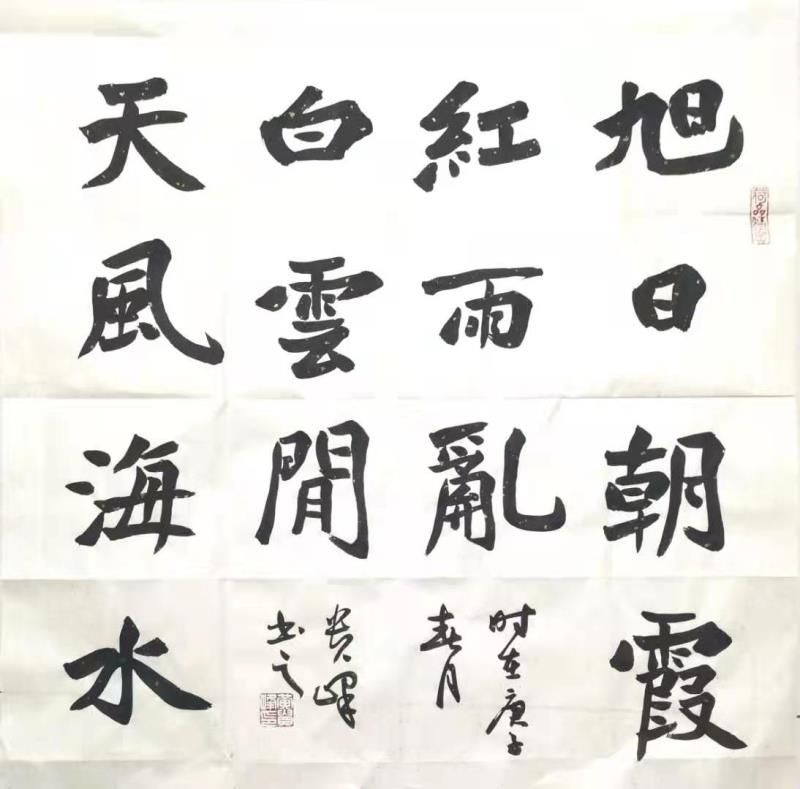 旭日朝霞
紅雨亂
白雲閒
天風海水
时在庚子
春月
书之